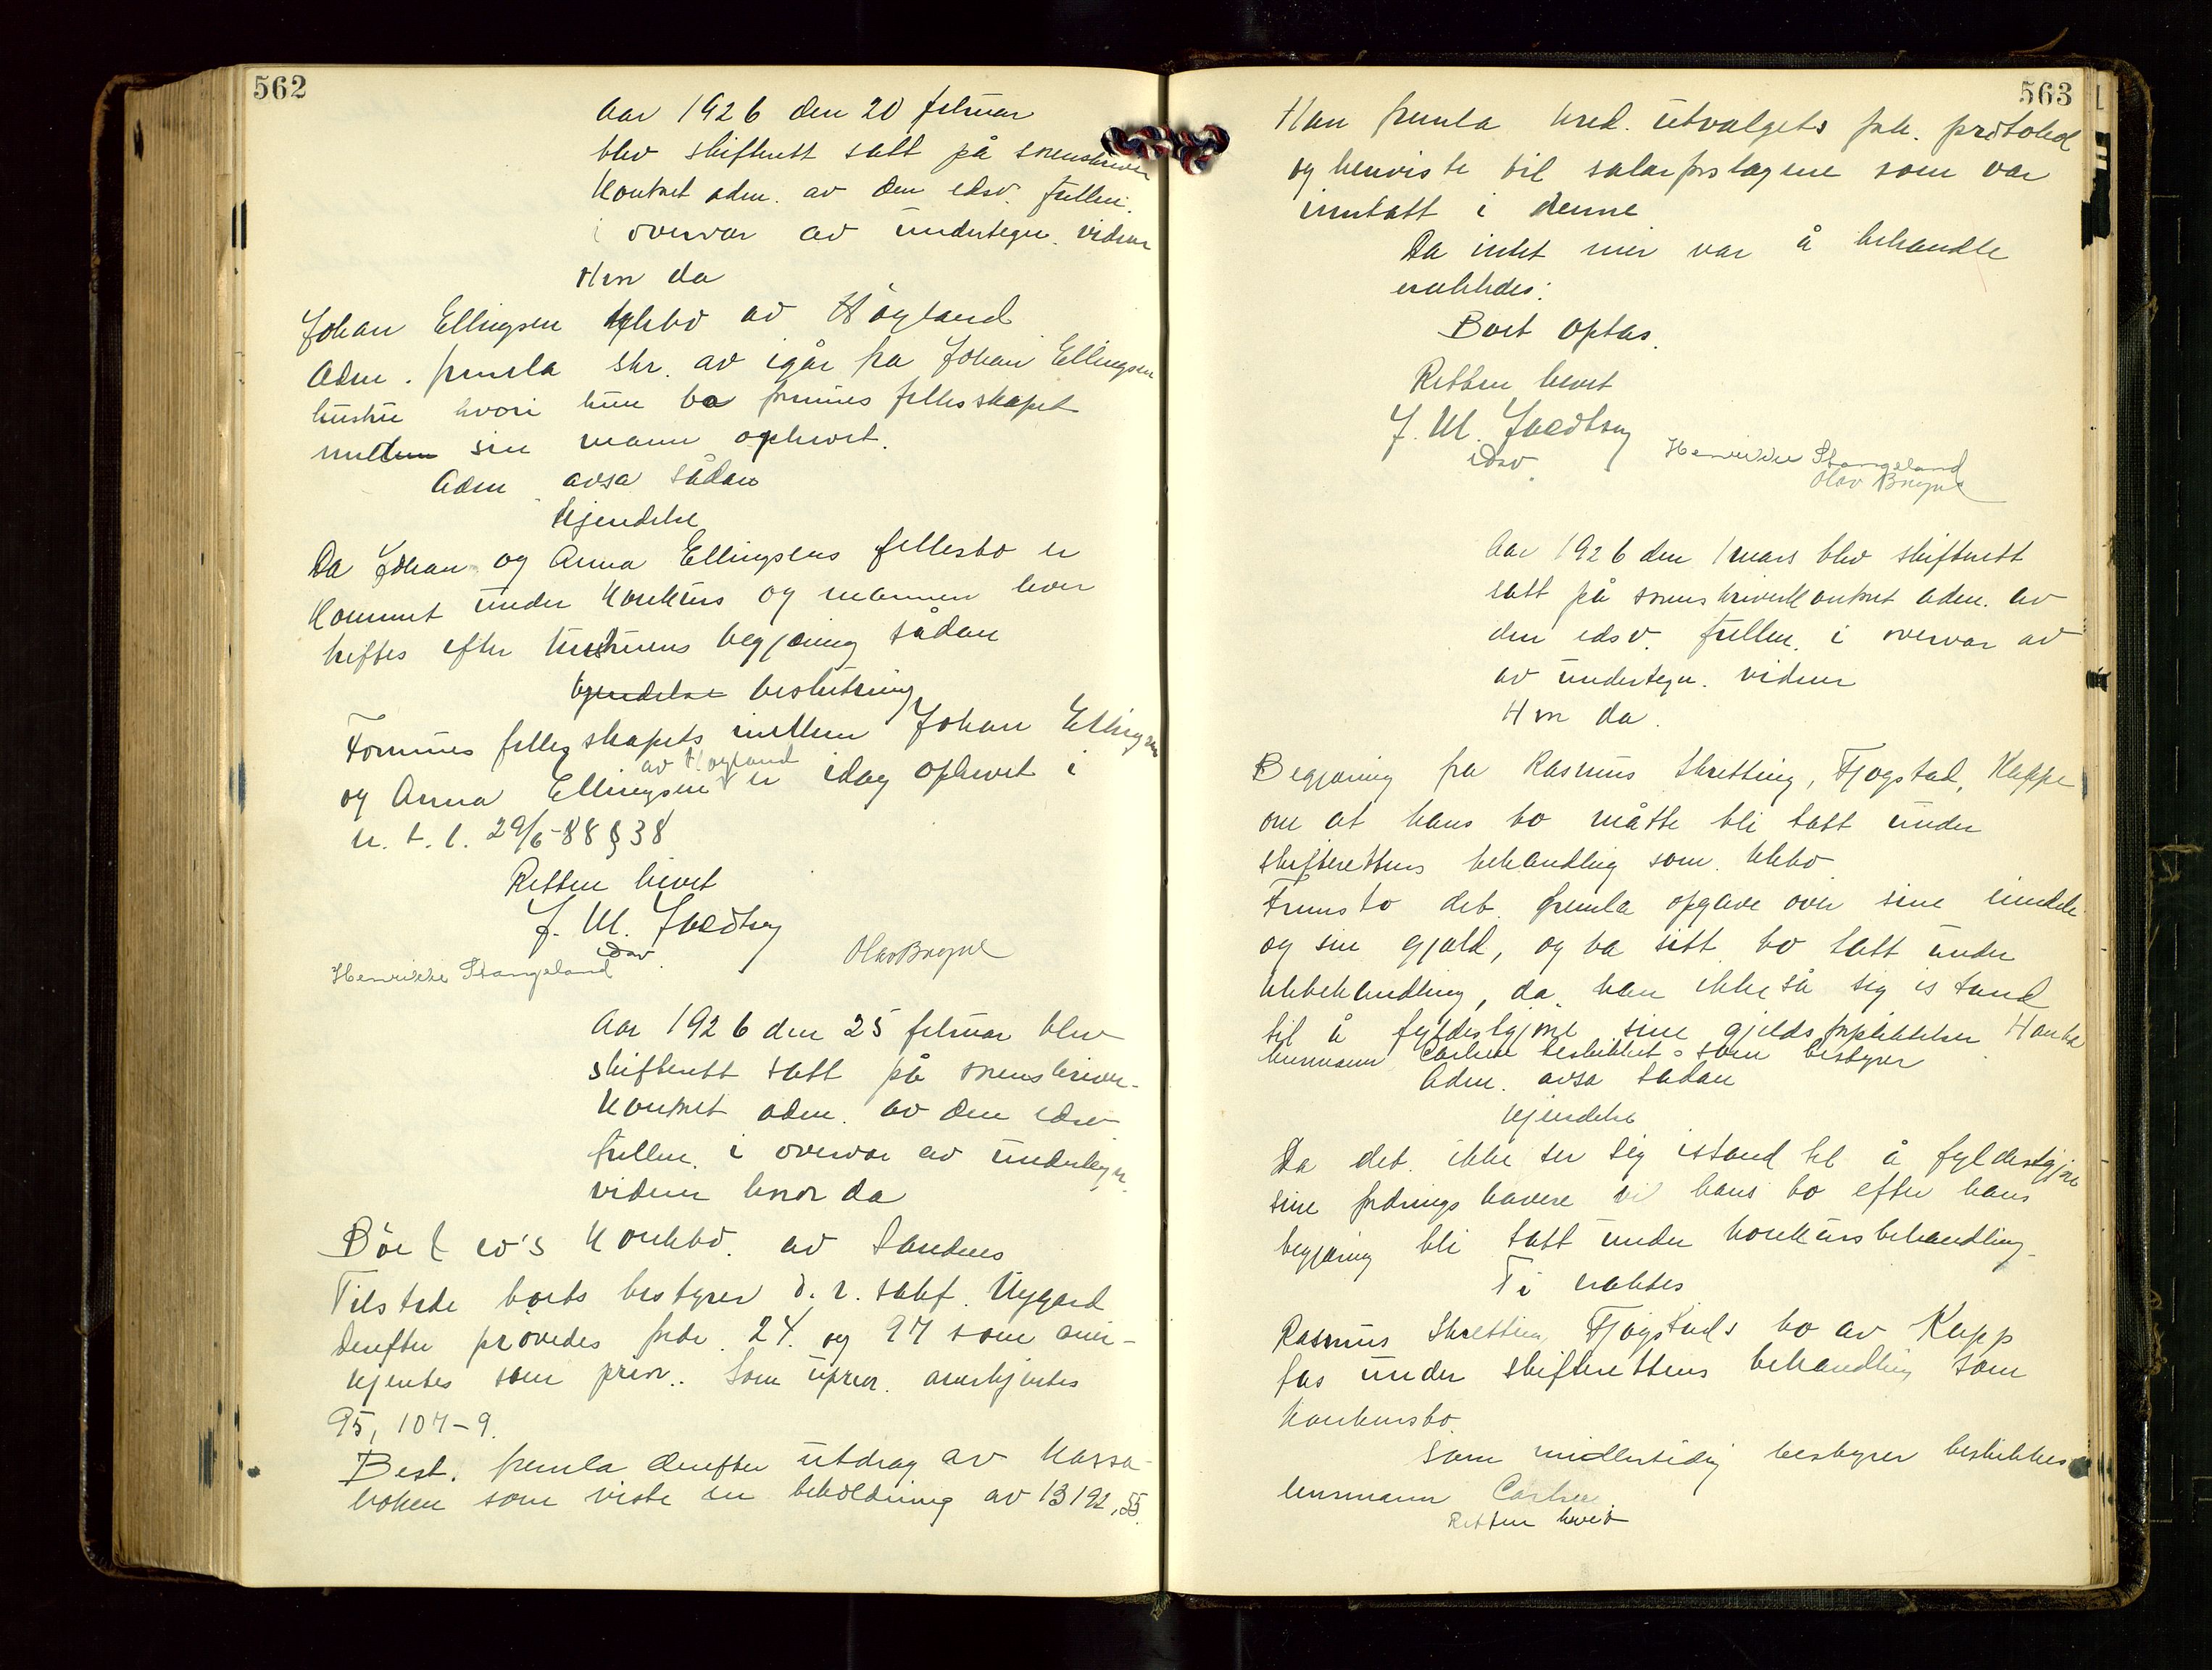 562
Aar 1926 den 20 februar
blev skifterett satt på sorenskriver
kontoret adm. av den edsv. fullm.
i overvær av undertegn. vidner
Hvor da
Johan Ellingsen kkbo av Høyland
Adm. fremla skr. av igår fra Johan Ellingsen
hustru hvori hun ba formues fellesskapet
mellem sin mann ophevet.
Adm avsa sådan
kjendelse
Da Johan og Anna Ellingsens fellesbo er
kommet under konkurs og mannen hver
heftes efter hustruens begjæring sådan
kjendelse beslutning
Formues fellesskapets mellem Johan Ellingsen
av Høyland
og Anna Ellingsen er idag ophevet i
h. t. l. 29/6-88 § 38
Retten hevet
J. M.
edsv.
Henrikke Stangeland
Olav Bryne
Aar 1926 den 25 februar blev
skifterett satt på sorenskriver-
kontoret adm. av den edsv
fullm. i overvær av undertegn.
vidner hvor da
& co's konkbo. av Sandnes
Tilstede boets bestyrer o. r. sakf. Nygard
Derefter prøvedes fordr. 24. og 97 som aner-
kjentes som prior. Som uprior. anerkjentes
95, 107-9.
Best. fremla derefter utdrag av kassa-
boken som viste en beholdning av 13192,55.
563
Han fremla kred. utvalgets forh. protokol
og henviste til salærforslagene som var
inntatt i denne
Da intet mer var å behandle
eraktedes:
Boet optas.
Retten hevet
J. M.
edsv.
Henrikke Stangeland
Olav Bryne
Aar 1926 den 1 mars blev skifterett
satt på sorenskriverkontoret adm. av
den edsv. fullm. i overvær av
av undertegn. vidner
Hvor da.
Begjæring fra Rasmus Skretting, Fjogstad, Kleppe
om at hans bo måtte bli tatt under
skifterettens behandling som kkbo
Fremsto deb. fremla opgave over sine eiendele
og sin gjæld, og ba sitt bo tatt under
kkbehandling, da han ikke så sig istand
til å fyldestgjøre sine gjeldsforpliktelser Han ba
lensmann Carlsen beskikket som bestyrer
Adm. avsa sådan
kjendelse
Da deb. ikke ser sig istand til å fyldestgjøre
sine fordringshavere vil hans bo efter hans
begjæring bli tatt under konkursbehandling
Ti eraktes
Rasmus Skretting Fjogstads bo av Klepp
tas under skifterettens behandling som
konkursbo.
Som midlertidig bestyrer beskikkes
lensmann Carlsen.
Retten hevet